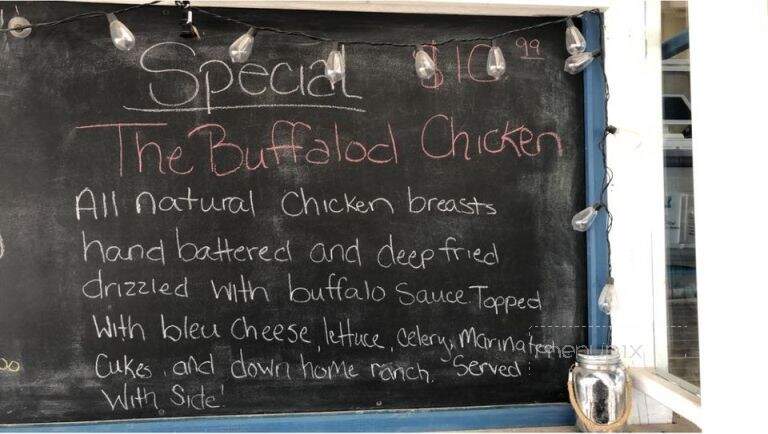 Special $10.99
The Buffalod Chicken
All natural chicken breasts
hand battered and deep fried
drizzled with buffalo sauce. Topped
with bleu cheese, lettuce, celery, marinated
cukes, and down home ranch. Served
with side!